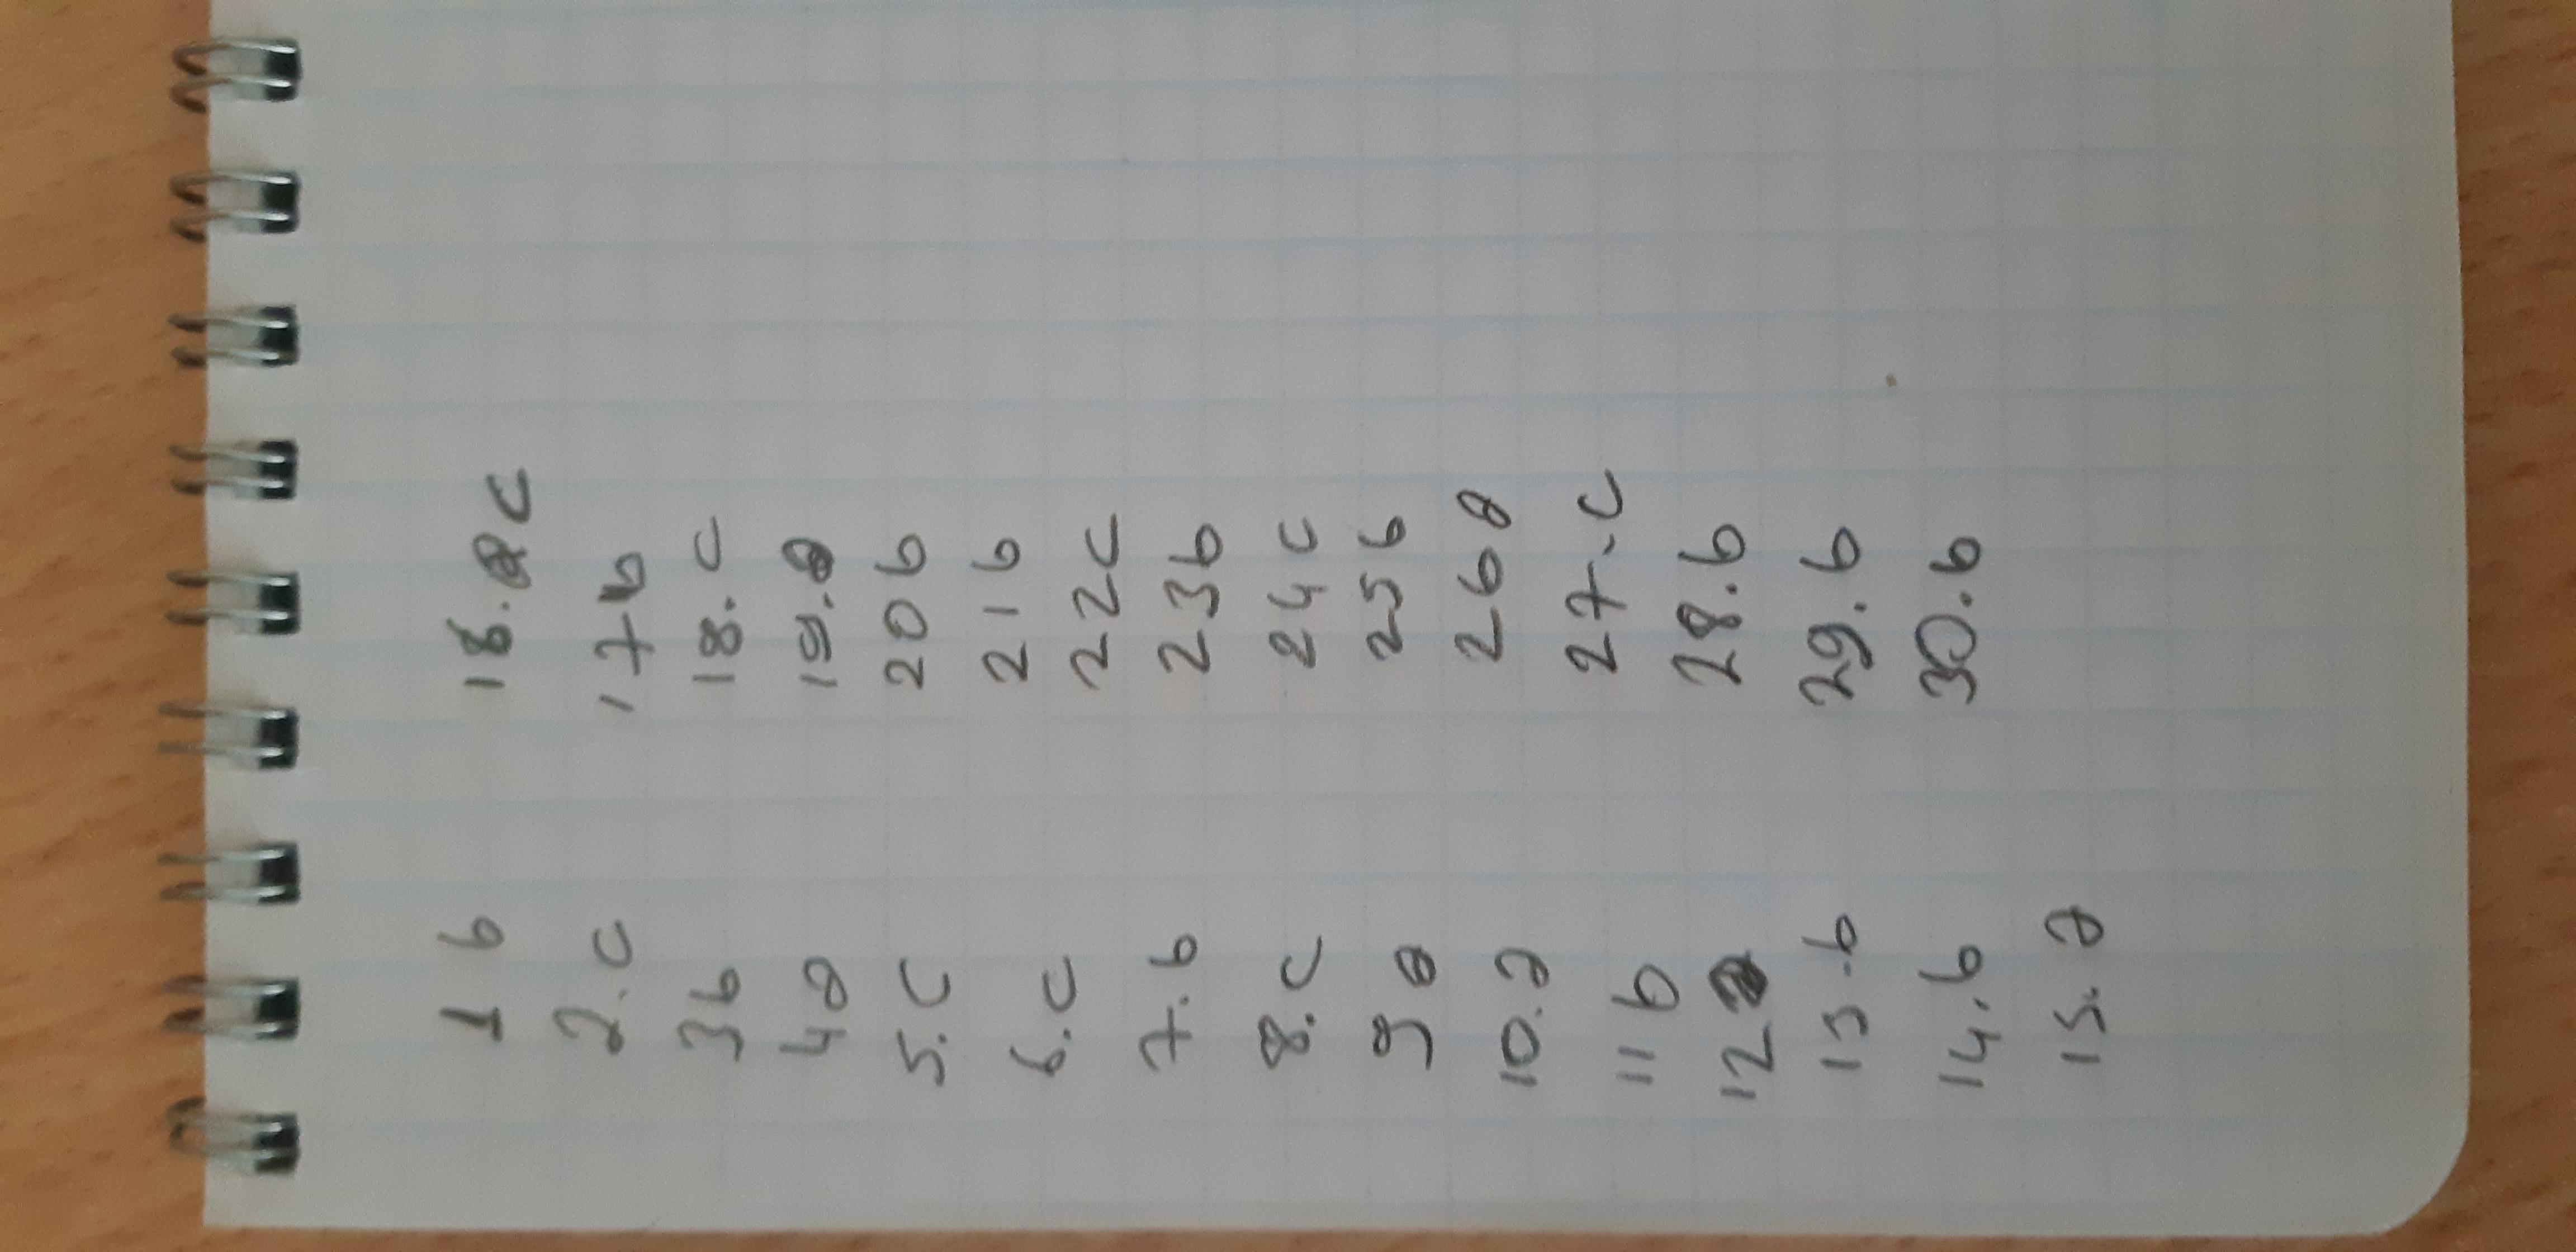 1 b
2. c
3 b
4 a
5. c
6. c
7. b
8. c
9 a
10. a
11 b
12 a
13. b
14. b
15. a
16. c
17 b
18. c
19. a
20 b
21 b
22 c
23 b
24 c
25 b
26 a
27. c
28. b
29. b
30. b